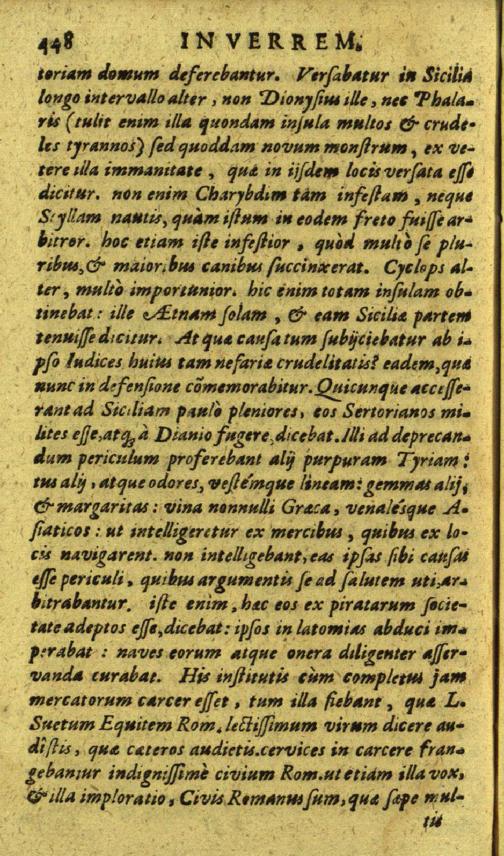 448 IN VERREM.
toriam domum deferebantur. Versabatur in Sicilia
longo intervallo alter, non Dionysius ille, nec Phala-
ris (tulit enim illa quondam insula multos & crude-
les tyrannos) sed quoddam novum monstrum, ex ve-
tere illa immanitate, quæ in ijsdem locis versata esse
dicitur. non enim Charybdim tàm infestam, neque
Scyllam nautis, quàm istum in eodem freto fuisse ar-
bitror. hoc etiam iste infestior, quòd multò se plu-
ribus, & maioribus canibus succinxerat. Cyclops al-
ter, multò importunior. hic enim totam insulam ob-
tinebat: ille Ætnam solam, & eam Siciliæ partem
tenuisse dicitur. At quæ causa tum subijciebatur ab i-
pso Iudices huius tam nefariæ crudelitatis? eadem, quæ
nunc in defensione cõmemorabitur. Quicunque accesse-
rant ad Siciliam paulò pleniores, eos Sertorianos mi-
lites esse, atq; à Dianio fugere, dicebat. Illi ad deprecan-
dum periculum proferebant alij purpuram Tyriam:
tus alij, atque odores, vestémque lineam: gemmas alij,
& margaritas: vina nonnulli Græca, venalésque A-
siaticos: ut intelligeretur ex mercibus, quibus ex lo-
cis navigarent. non intelligebant, eas ipsas sibi causas
esse periculi, quibus argumentis se ad salutem uti, ar-
bitrabantur. iste enim, hæc eos ex piratarum socie-
tate adeptos esse, dicebat: ipsos in latomias abduci im-
perabat: naves eorum atque onera diligenter asser-
vanda curabat. His institutis cùm completus jam
mercatorum carcer esset, tum illa fiebant, quæ L.
Suetum Equitem Rom. lectissimum virum dicere au-
distis, quæ cæteros audietis. cervices in carcere fran-
gebantur indignissimè civium Rom. ut etiam illa vox,
& illa imploratio, Civis Romanus sum, quæ sæpe mul-
tis